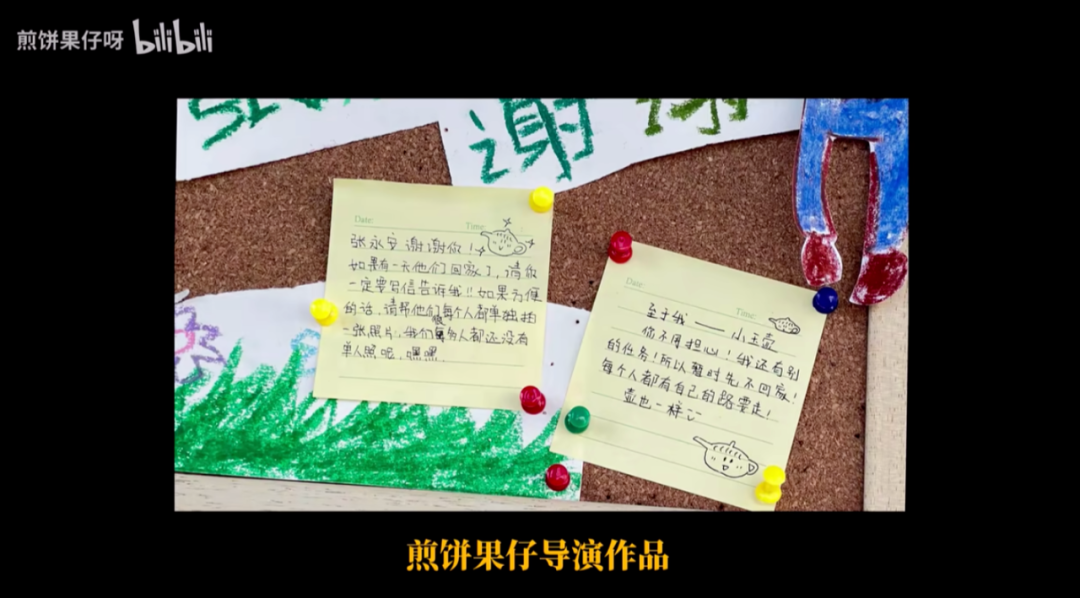 煎饼果仔呀 bilibili
谢
Date:
Time:
张永安 谢谢你!
如果有一天他们回家了,请你
一定要写信告诉我!!如果方便
的话,请帮他们每个人都单独拍
一张照片,我们很多人都还没有
单人照呢,嘿嘿.
Date:
Time:
至于我——小玉壶
你不用担心!我还有别
的任务!所以暂时先不回家!
每个人都有自己的路要走!
壶也一样
煎饼果仔导演作品